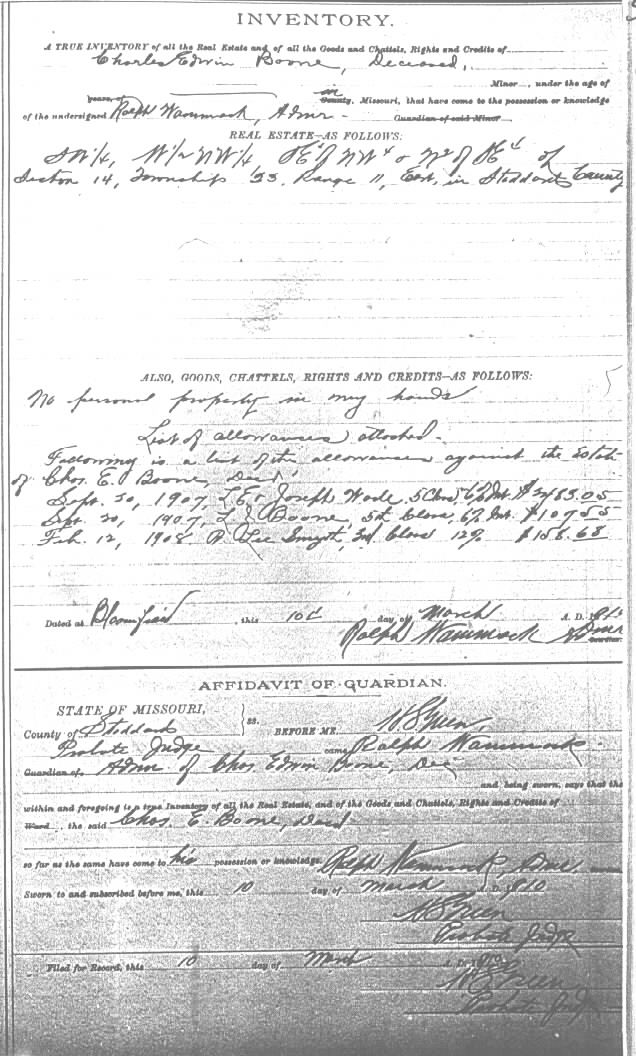 INVENTORY.
A TRUE INVENTORY of all the Real Estate and of all the Goods and Chattels, Rights and Credits of
Charles Edwin Boone, Deceased,
Minor, under the age of
years, of in County, Missouri, that have come to the possession or knowledge
of the undersigned Ralph Wammack, Admr - Guardian of said Minor
REAL ESTATE—AS FOLLOWS:
SW 1/4, W 1/2 NW 1/4, of NW 4 & of of
Section 14, Township 25. Range 11, East, in Stoddard County
ALSO, GOODS, CHATTELS, RIGHTS AND CREDITS—AS FOLLOWS:
No personal property in my hands
List of allowances attached.
Following is a list of the allowances against the Estate
of Chas. E. Boone, Dec'd
Sept. 20, 1907, Joseph Wade 5 Class, 6% Int. $2483.05
Sept. 20, 1907, L J Boone, 5th Class, 6% Int. $107.55
Feb. 12, 1908 R. Lee Smyth, 3d Class 12% $158.68
Dated at Bloomfield , this 10th day of March A. D.
Ralph Wammack Admr
AFFIDAVIT OF GUARDIAN.
STATE OF MISSOURI,
County of Stoddard ss. BEFORE ME Green
Probate Judge came Ralph Wammack
Guardian of Admr of Chas. Edwin Boone, Dec
and being sworn, says that the
within and foregoing is a true Inventory of all the Real Estate, and of the Goods and Chattels, Rights and Credits of
Ward , the said Chas. E. Boone, Decd
so far as the same have come to his possession or knowledge. Ralph Wammack, Admr.
Sworn to and subscribed before me, this 10 day of March A. D. 1910
Green
Probate Judge
Filed for Record, this 10 day of March A. D. 1910
Green
Probate Judge